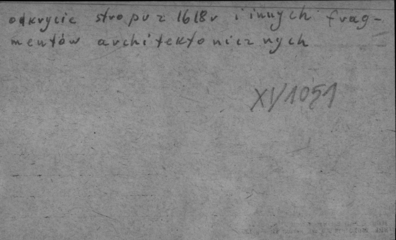 odkrycie stropu z 1618r i innych frag-
mentów architektonicznych
XV/1051